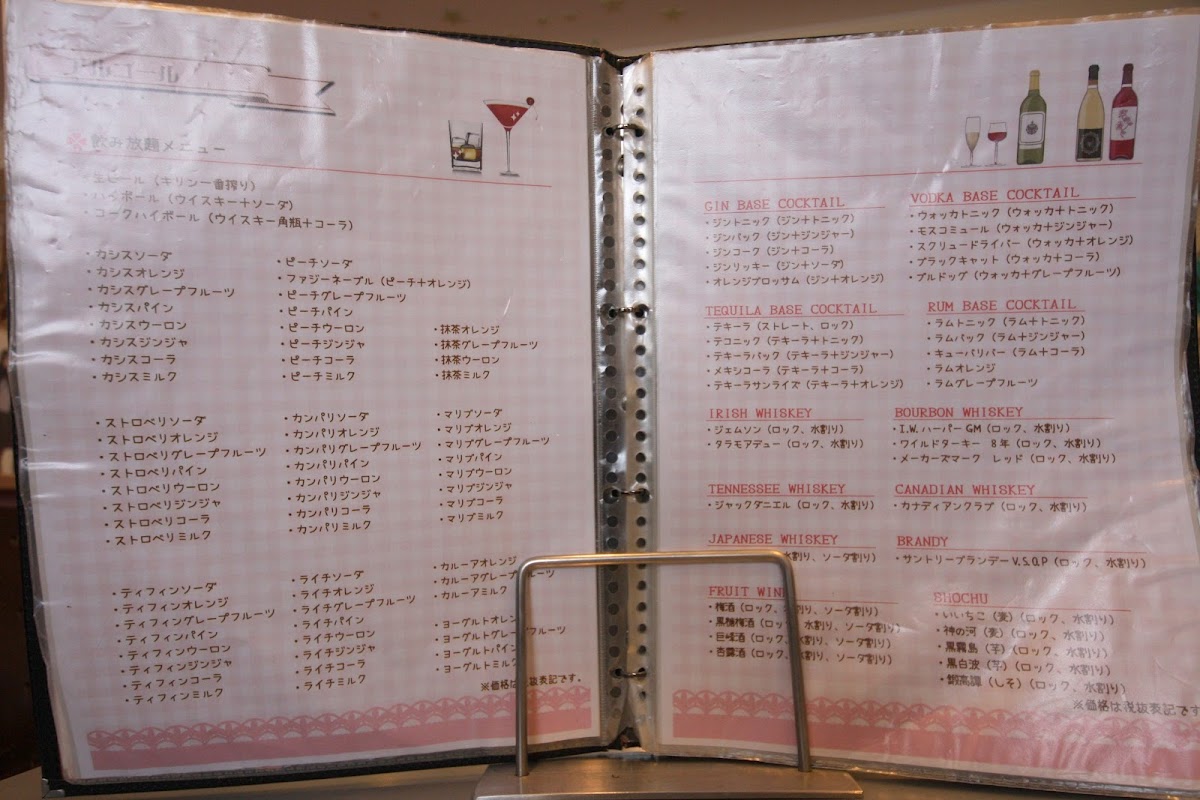 アルコール
飲み放題メニュー
生ビール（キリン一番搾り）
・ハイボール（ウイスキー＋ソーダ）
・コークハイボール（ウイスキー角瓶＋コーラ）
・カシスソーダ
・カシスオレンジ
・カシスグレープフルーツ
・カシスパイン
・カシスウーロン
・カシスジンジャ
・カシスコーラ
・カシスミルク
・ピーチソーダ
・ファジーネーブル（ピーチ＋オレンジ）
・ピーチグレープフルーツ
・ピーチパイン
・ピーチウーロン
・ピーチジンジャ
・ピーチコーラ
・ピーチミルク
・抹茶オレンジ
・抹茶グレープフルーツ
・抹茶ウーロン
・抹茶ミルク
・ストロベリソーダ
・ストロベリオレンジ
・ストロベリグレープフルーツ
・ストロベリパイン
・ストロベリウーロン
・ストロベリジンジャ
・ストロベリコーラ
・ストロベリミルク
・カンパリソーダ
・カンパリオレンジ
・カンパリグレープフルーツ
・カンパリパイン
・カンパリウーロン
・カンパリジンジャ
・カンパリコーラ
・カンパリミルク
・マリブソーダ
・マリブオレンジ
・マリブグレープフルーツ
・マリブパイン
・マリブウーロン
・マリブジンジャ
・マリブコーラ
・マリブミルク
・ティフィンソーダ
・ティフィンオレンジ
・ティフィングレープフルーツ
・ティフィンパイン
・ティフィンウーロン
・ティフィンジンジャ
・ティフィンコーラ
・ティフィンミルク
・ライチソーダ
・ライチオレンジ
・ライチグレープフルーツ
・ライチパイン
・ライチウーロン
・ライチジンジャ
・ライチコーラ
・ライチミルク
・カルーアオレンジ
・カルーアグレープフルーツ
・カルーアミルク
・ヨーグルトオレンジ
・ヨーグルトグレープフルーツ
・ヨーグルトパイン
・ヨーグルトミルク
※価格は税抜表記です。
GIN BASE COCKTAIL
・ジントニック（ジン＋トニック）
・ジンバック（ジン＋ジンジャー）
・ジンコーク（ジン＋コーラ）
・ジンリッキー（ジン＋ソーダ）
・オレンジブロッサム（ジン＋オレンジ）
VODKA BASE COCKTAIL
・ウォッカトニック（ウォッカ＋トニック）
・モスコミュール（ウォッカ＋ジンジャー）
・スクリュードライバー（ウォッカ＋オレンジ）
・ブラックキャット（ウォッカ＋コーラ）
・ブルドッグ（ウォッカ＋グレープフルーツ）
TEQUILA BASE COCKTAIL
・テキーラ（ストレート、ロック）
・テコニック（テキーラ＋トニック）
・テキーラバック（テキーラ＋ジンジャー）
・メキシコーラ（テキーラ＋コーラ）
・テキーラサンライズ（テキーラ＋オレンジ）
RUM BASE COCKTAIL
・ラムトニック（ラム＋トニック）
・ラムバック（ラム＋ジンジャー）
・キューバリバー（ラム＋コーラ）
・ラムオレンジ
・ラムグレープフルーツ
IRISH WHISKEY
・ジェムソン（ロック、水割り）
・タラモアデュー（ロック、水割り）
BOURBON WHISKEY
・I.W.ハーパーGM（ロック、水割り）
・ワイルドターキー 8年（ロック、水割り）
・メーカーズマーク レッド（ロック、水割り）
TENNESSEE WHISKEY
・ジャックダニエル（ロック、水割り）
CANADIAN WHISKEY
・カナディアンクラブ（ロック、水割り）
JAPANESE WHISKEY
水割り、ソーダ割り）
BRANDY
・サントリーブランデーV.S.O.P（ロック、水割り）
FRUIT WINE
・梅酒（ロック、水割り、ソーダ割り）
・黒糖梅酒（ロック、水割り、ソーダ割り）
・巨峰酒（ロック、水割り、ソーダ割り）
・杏露酒（ロック、水割り、ソーダ割り）
SHOCHU
・いいちこ（麦）（ロック、水割り）
・神の河（麦）（ロック、水割り）
・黒霧島（芋）（ロック、水割り）
・黒白波（芋）（ロック、水割り）
・鍛高譚（しそ）（ロック、水割り）
※価格は税抜表記です